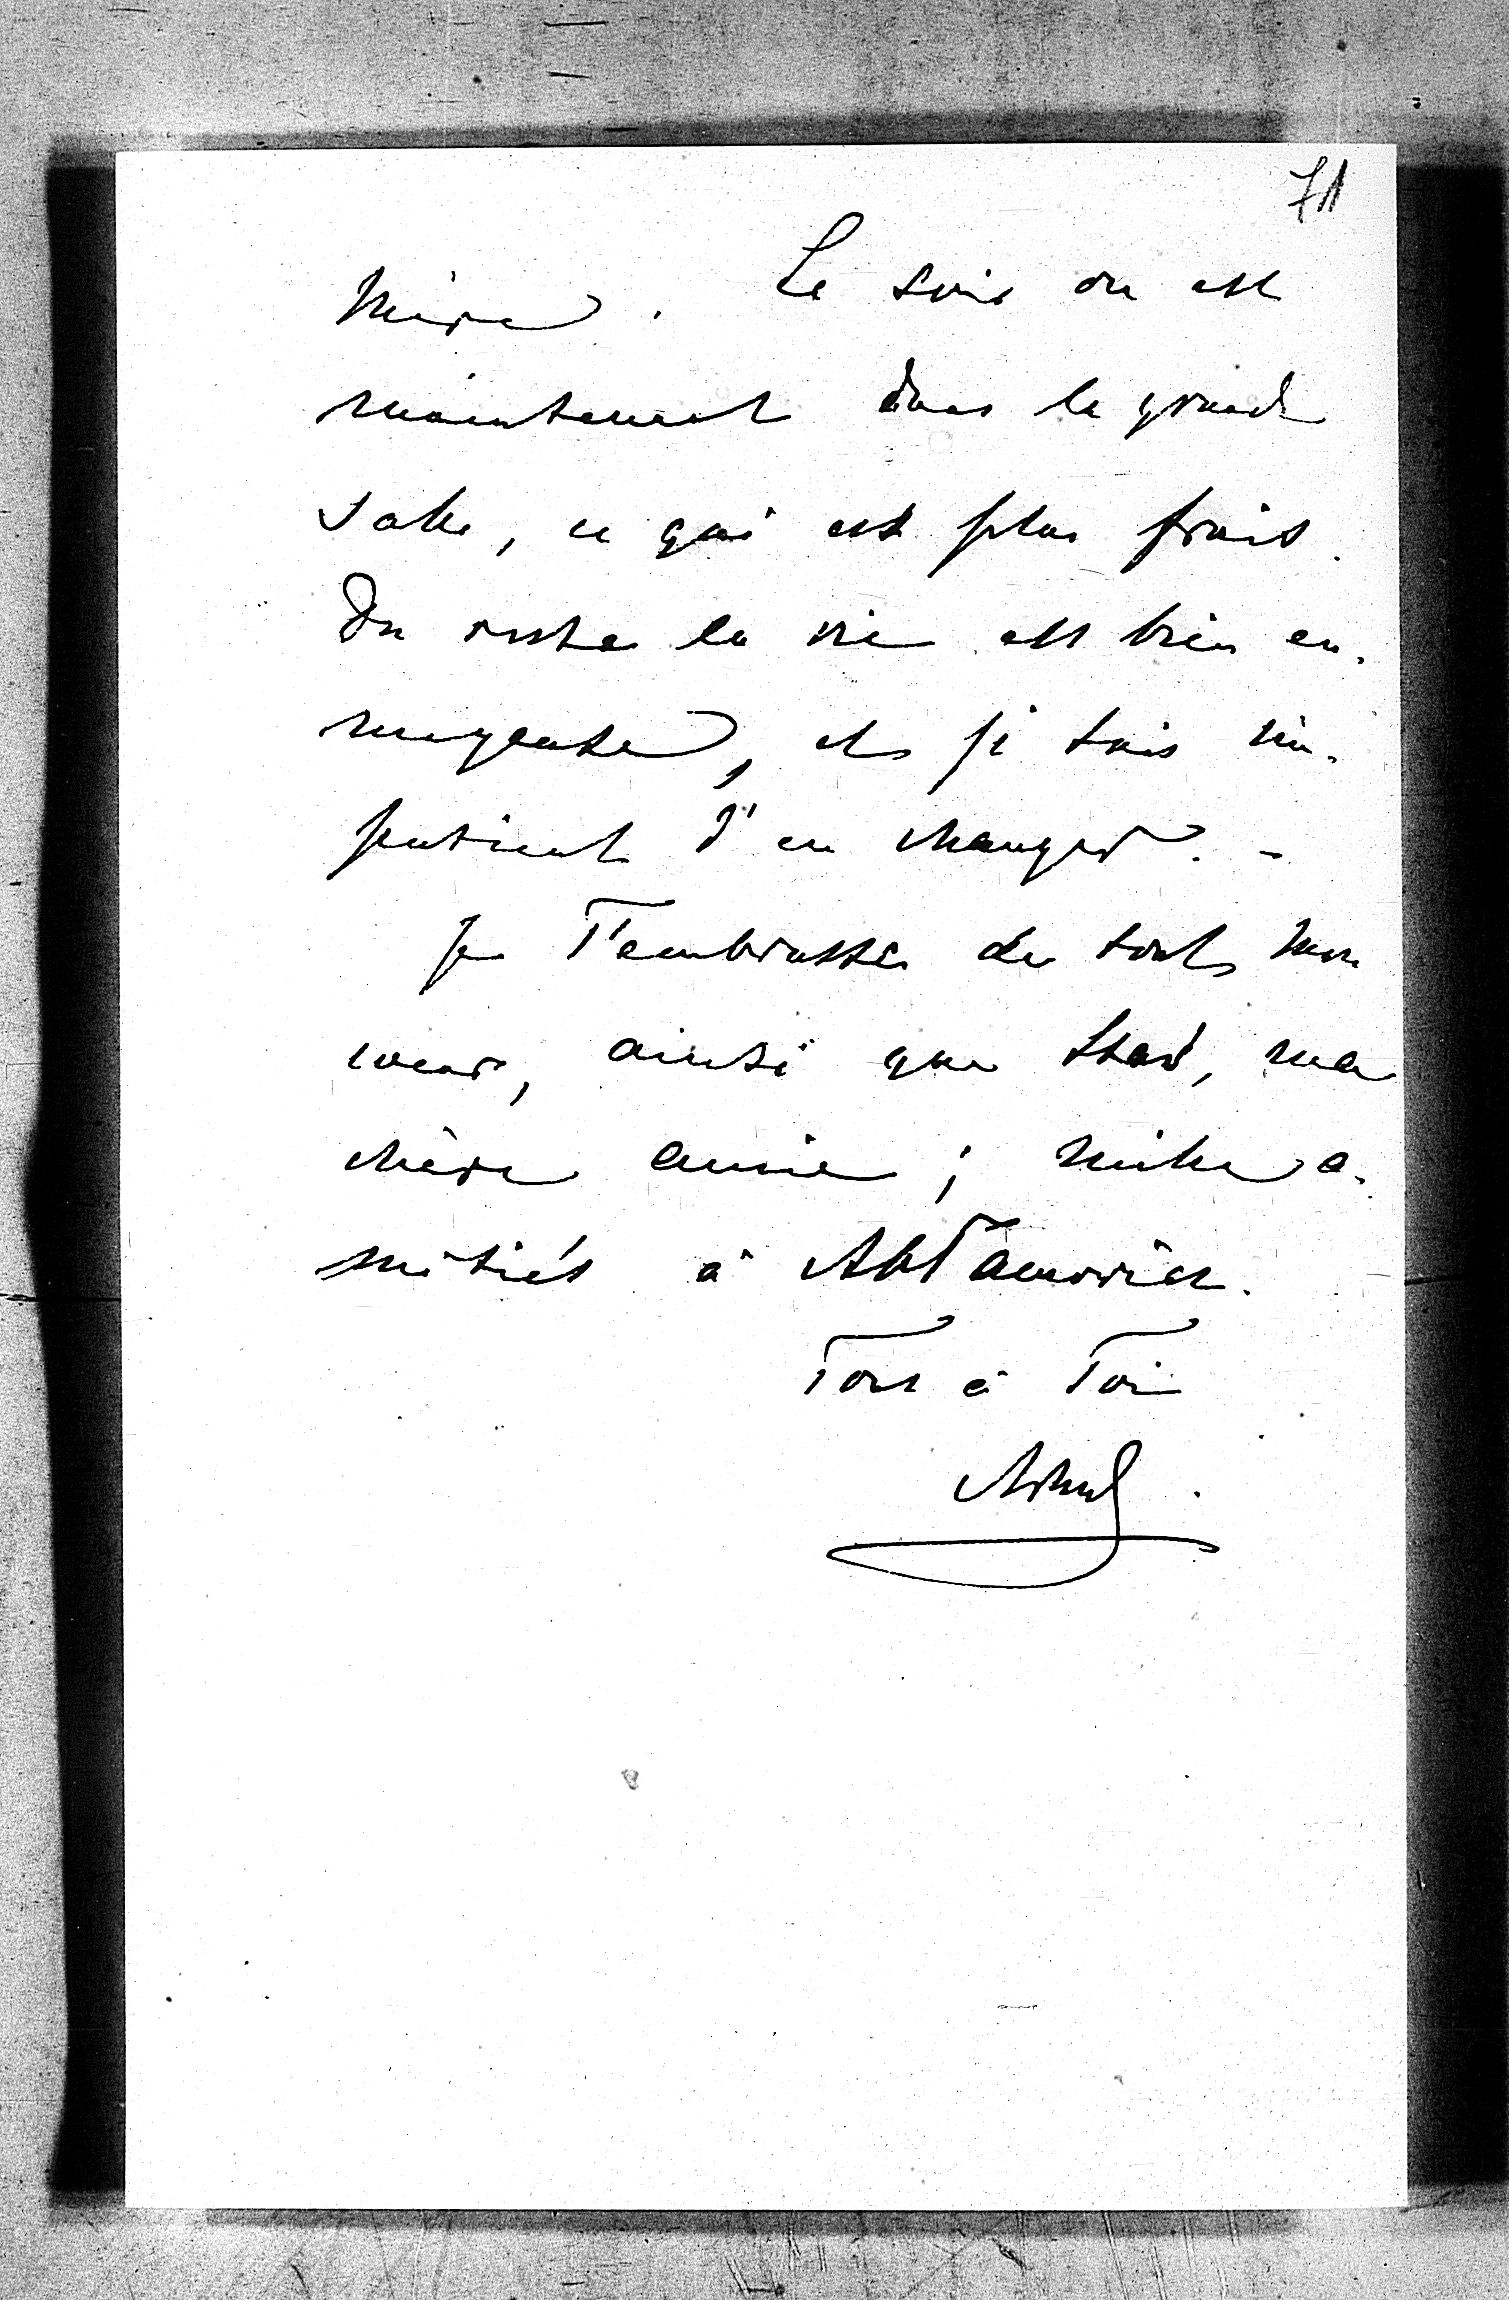 71
Mère. Le soir on est
maintenant dans la grande
salle, ce qui est plus frais.
Du reste la vie est bien en-
nuyeuse, et je suis im-
patient d'en changer. -
Je T'embrasse de tout mon
cœur, ainsi que Stas, ma
chère amie ; mille a-
mitiés à
Tout à Toi